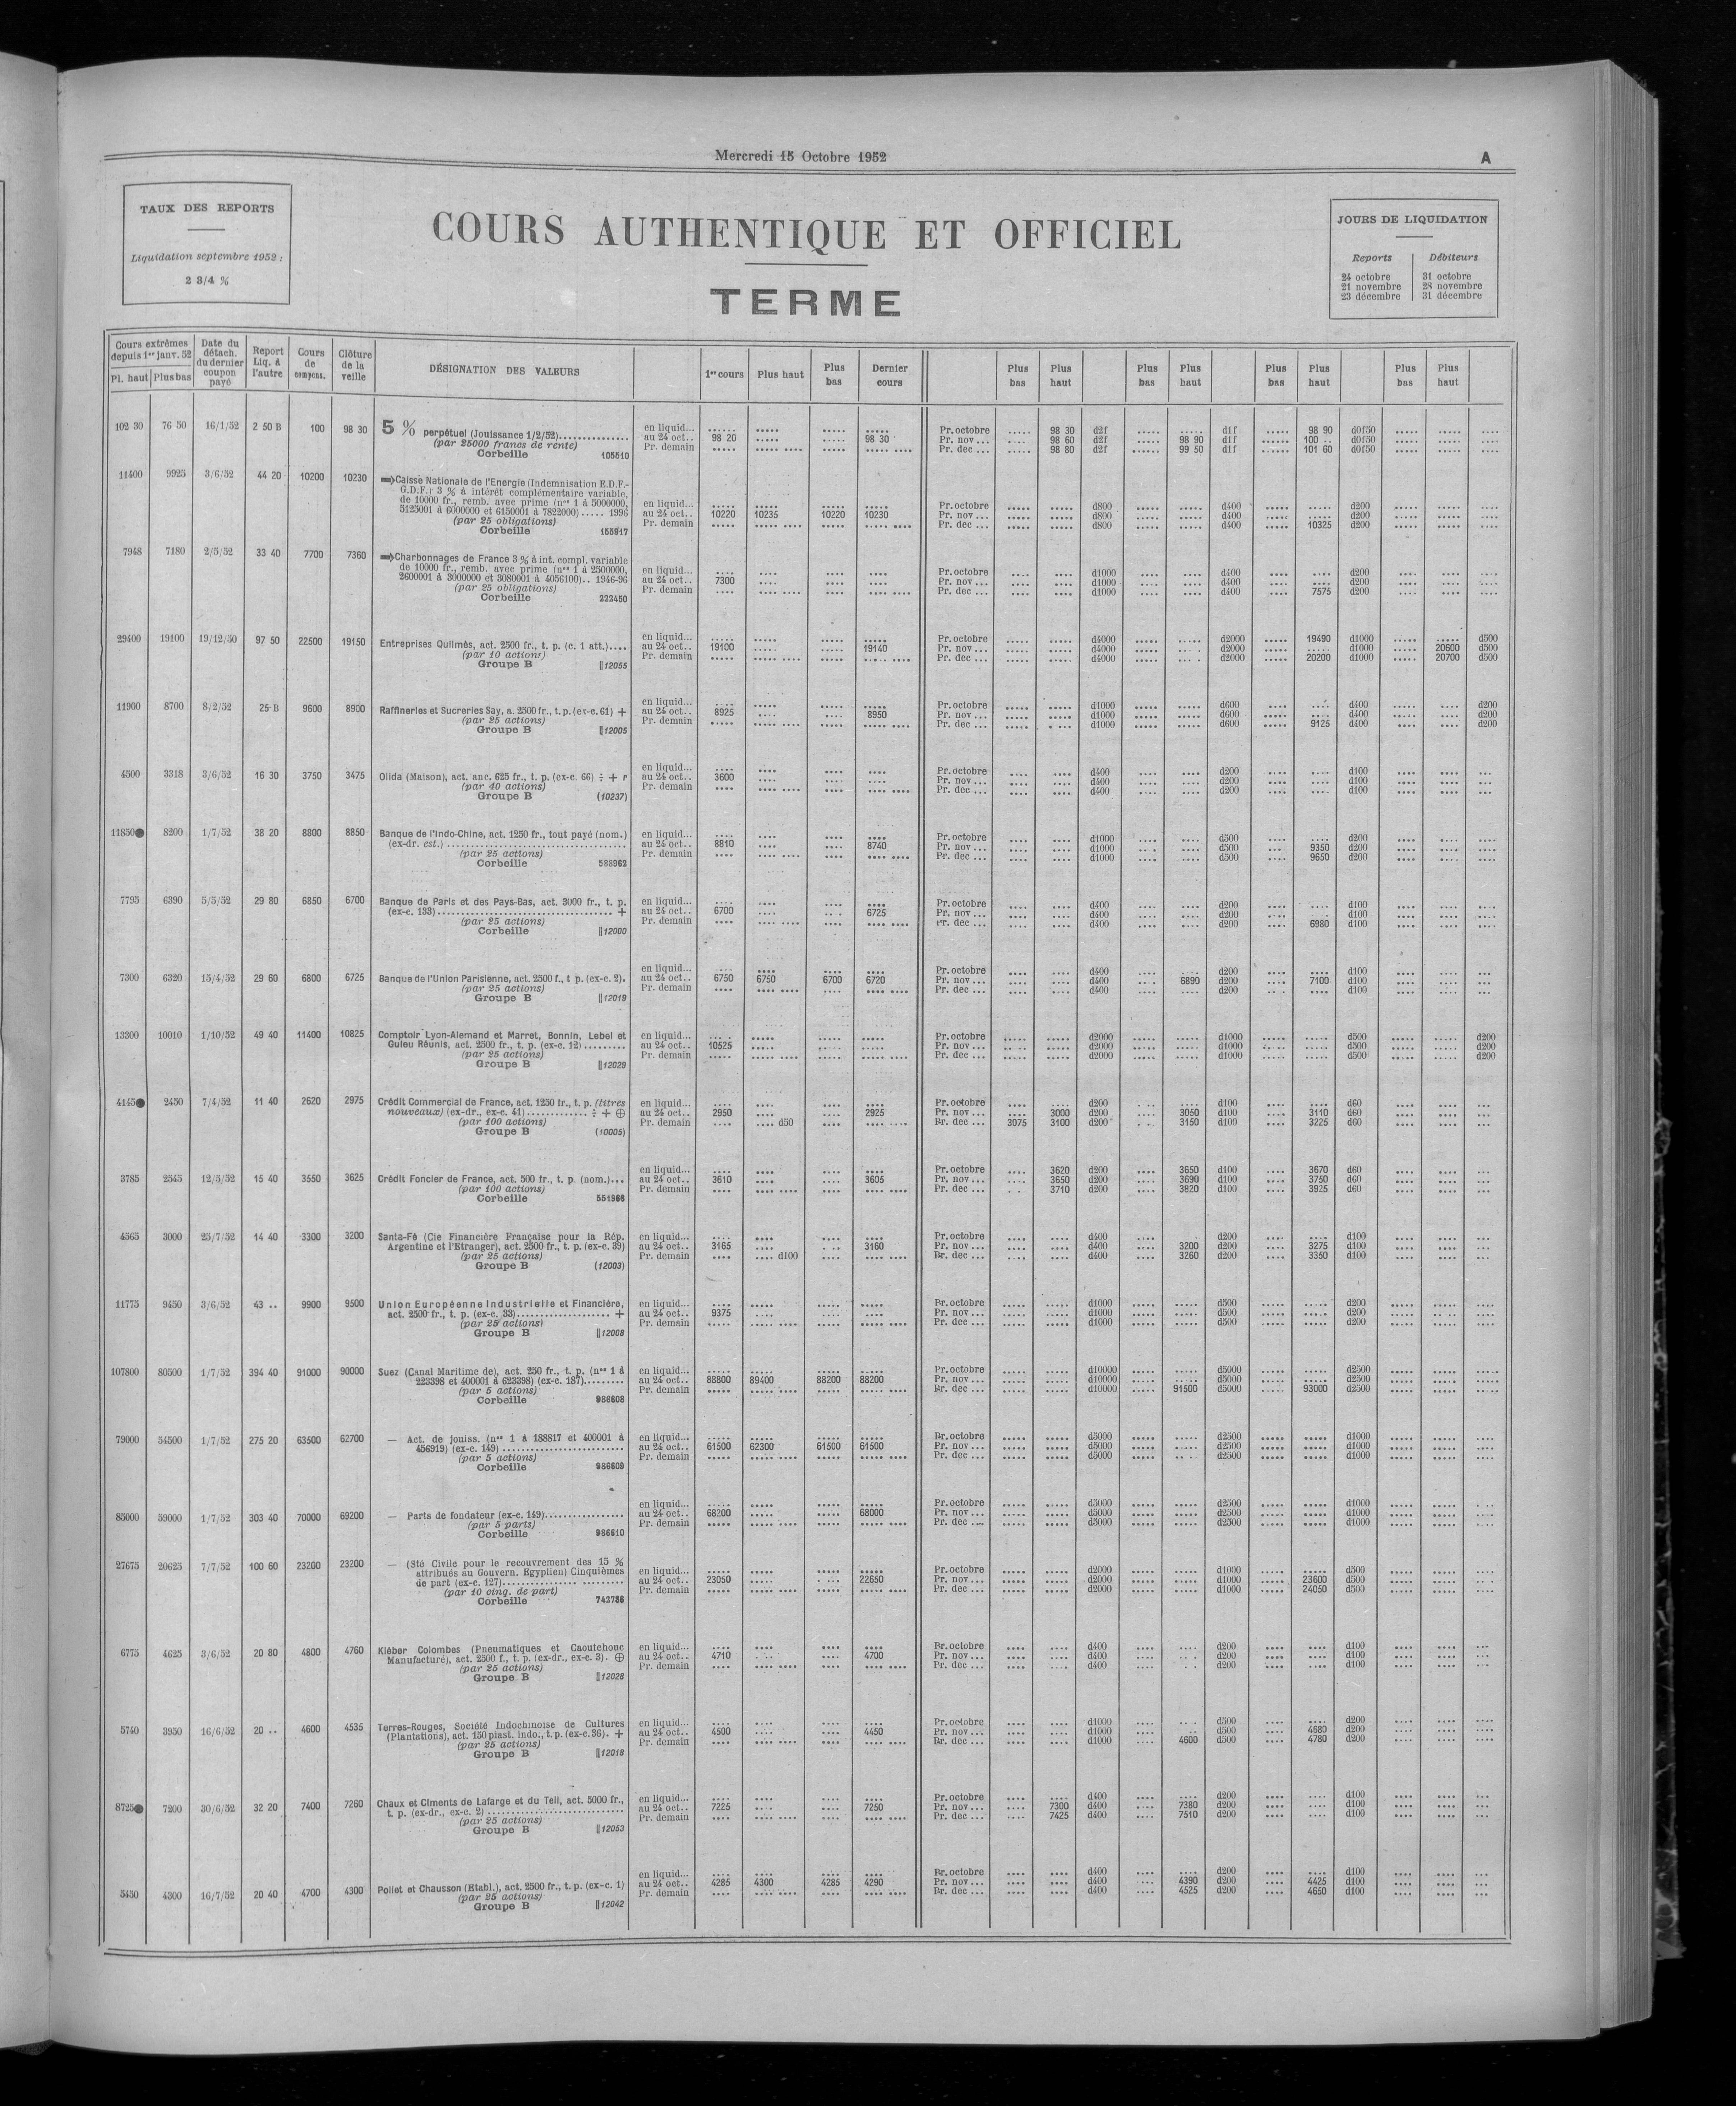 Mercredi 15 Octobre 1952 A
TAUX DES REPORTS
Liquidation septembre 1952 :
2 3/4 %
COURS AUTHENTIQUE ET OFFICIEL
TERME
JOURS DE LIQUIDATION
Reports Débiteurs
24 octobre 31 octobre
21 novembre 28 novembre
23 décembre 31 décembre
Cours extrêmes depuis 1er janv. 52 Pl. haut Plus bas Date du détach. du dernier coupon payé Report Liq. à l'autre Cours de compens. Clôture de la veille DÉSIGNATION DES VALEURS 1er cours Plus haut Plus bas Dernier cours Plus bas Plus haut Plus bas Plus haut Plus bas Plus haut Plus bas Plus haut
102 30 76 50 16/1/52 2 50 B 100 98 30 5 % perpétuel (Jouissance 1/2/52).............. en liquid... Pr. octobre 98 30 d2f d1f 98 90 d0f50
(par 25000 francs de rente) au 24 oct.. 98 20 98 30 Pr. nov ... 98 60 d2f 98 90 d1f 100 .. d0f50
Corbeille 105510 Pr. demain Pr. dec ... 98 80 d2f 99 50 d1f 101 60 d0f50
11400 9925 3/6/52 44 20 10200 10230 Caisse Nationale de l'Energie (Indemnisation E.D.F.-
G.D.F.) 3 % à intérêt complémentaire variable,
de 10000 fr., remb. avec prime (nos 1 à 5000000, en liquid... Pr. octobre d800 d400 d200
5125001 à 6000000 et 6150001 à 7822000)..... 1996 au 24 oct.. 10220 10235 10220 10230 Pr. nov ... d800 d400 d200
(par 25 obligations) Pr. demain Pr. dec ... d800 d400 10325 d200
Corbeille 155917
7948 7180 2/5/52 33 40 7700 7360 Charbonnages de France 3 % à int. compl. variable
de 10000 fr., remb. avec prime (nos 1 à 2500000, en liquid... Pr. octobre d1000 d400 d200
2600001 à 3000000 et 3080001 à 4056100).. 1946-96 au 24 oct.. 7300 Pr. nov ... d1000 d400 d200
(par 25 obligations) Pr. demain Pr. dec ... d1000 d400 7575 d200
Corbeille 222450
29400 19100 19/12/50 97 50 22500 19150 Entreprises Quilmès, act. 2500 fr., t. p. (c. 1 att.).... en liquid... Pr. octobre d4000 d2000 19490 d1000 d500
(par 10 actions) au 24 oct.. 19100 19140 Pr. nov ... d4000 d2000 d1000 20600 d500
Groupe B ||12055 Pr. demain Pr. dec ... d4000 d2000 20200 d1000 20700 d500
11900 8700 8/2/52 25 B 9600 8900 Raffineries et Sucreries Say, a. 2500 fr., t. p. (ex-c. 61) + en liquid... Pr. octobre d1000 d600 d400 d200
(par 25 actions) au 24 oct.. 8925 8950 Pr. nov ... d1000 d600 d400 d200
Groupe B ||12005 Pr. demain Pr. dec ... d1000 d600 9125 d400 d200
4500 3318 3/6/52 16 30 3750 3475 Olida (Maison), act. anc. 625 fr., t. p. (ex-c. 66) ÷ + r en liquid... Pr. octobre d400 d200 d100
(par 40 actions) au 24 oct.. 3600 Pr. nov ... d400 d200 d100
Groupe B (10237) Pr. demain Pr. dec ... d400 d200 d100
11850● 8200 1/7/52 38 20 8800 8850 Banque de l'Indo-Chine, act. 1250 fr., tout payé (nom.) en liquid... Pr. octobre d1000 d500 d200
(ex-dr. est.) .................................... au 24 oct.. 8810 8740 Pr. nov ... d1000 d500 9350 d200
(par 25 actions) Pr. demain Pr. dec ... d1000 d500 9650 d200
Corbeille 588962
7795 6390 5/5/52 29 80 6850 6700 Banque de Paris et des Pays-Bas, act. 3000 fr., t. p. en liquid... Pr. octobre d400 d200 d100
(ex-c. 133)................................... + au 24 oct.. 6700 6725 Pr. nov ... d400 d200 d100
(par 25 actions) Pr. demain Pr. dec ... d400 d200 6980 d100
Corbeille ||12000
7300 6320 15/4/52 29 60 6800 6725 Banque de l'Union Parisienne, act. 2500 f., t p. (ex-c. 2). en liquid... Pr. octobre d400 d200 d100
(par 25 actions) au 24 oct.. 6750 6750 6700 6720 Pr. nov ... d400 6890 d200 7100 d100
Groupe B ||12019 Pr. demain Pr. dec ... d400 d200 d100
13300 10010 1/10/52 49 40 11400 10825 Comptoir Lyon-Alemand et Marret, Bonnin, Lebel et en liquid... Pr. octobre d2000 d1000 d500 d200
Guieu Réunis, act. 2500 fr., t. p. (ex-c. 12)......... au 24 oct.. 10525 Pr. nov ... d2000 d1000 d500 d200
(par 25 actions) Pr. demain Pr. dec ... d2000 d1000 d500 d200
Groupe B ||12029
4145● 2450 7/4/52 11 40 2620 2975 Crédit Commercial de France, act. 1250 fr., t. p. (titres en liquid... Pr. octobre d200 d100 d60
nouveaux) (ex-dr., ex-c. 41)............ ÷ + ⊕ au 24 oct.. 2950 2925 Pr. nov ... 3000 d200 3050 d100 3110 d60
(par 100 actions) Pr. demain d50 Br. dec ... 3075 3100 d200 3150 d100 3225 d60
Groupe B (10005)
3785 2545 12/5/52 15 40 3550 3625 Crédit Foncier de France, act. 500 fr., t. p. (nom.)... en liquid... Pr. octobre 3620 d200 3650 d100 3670 d60
(par 100 actions) au 24 oct.. 3610 3605 Pr. nov ... 3650 d200 3690 d100 3750 d60
Corbeille 551966 Pr. demain Pr. dec ... 3710 d200 3820 d100 3925 d60
4565 3000 25/7/52 14 40 3300 3200 Santa-Fé (Cie Financière Française pour la Rép. en liquid... Pr. octobre d400 d200 d100
Argentine et l'Etranger), act. 2500 fr., t. p. (ex-c. 39) au 24 oct.. 3165 3160 Pr. nov ... d400 3200 d200 3275 d100
(par 25 actions) Pr. demain d100 Br. dec ... d400 3260 d200 3350 d100
Groupe B (12003)
11775 9450 3/6/52 43 .. 9900 9500 Union Européenne Industrielle et Financière, en liquid... Br. octobre d1000 d500 d200
act. 2500 fr., t. p. (ex-c. 33)................... + au 24 oct.. 9375 Pr. nov ... d1000 d500 d200
(par 25 actions) Pr. demain Pr. dec ... d1000 d500 d200
Groupe B ||12008
107800 80500 1/7/52 394 40 91000 90000 Suez (Canal Maritime de), act. 250 fr., t. p. (nos 1 à en liquid... Pr. octobre d10000 d5000 d2500
223398 et 400001 à 623398) (ex-c. 187)......... au 24 oct.. 88800 89400 88200 88200 Pr. nov ... d10000 d5000 d2500
(par 5 actions) Pr. demain Br. dec ... d10000 91500 d5000 93000 d2500
Corbeille 986608
79000 54500 1/7/52 275 20 63500 62700 — Act. de jouiss. (nos 1 à 188817 et 400001 à en liquid... Br. octobre d5000 d2500 d1000
456919) (ex-c. 149) ........................ au 24 oct.. 61500 62300 61500 61500 Pr. nov ... d5000 d2500 d1000
(par 5 actions) Pr. demain Pr. dec ... d5000 d2500 d1000
Corbeille 986609
85000 59000 1/7/52 303 40 70000 69200 — Parts de fondateur (ex-c. 149)................ en liquid... Pr. octobre d5000 d2500 d1000
(par 5 parts) au 24 oct.. 68200 68000 Pr. nov ... d5000 d2500 d1000
Corbeille 986610 Pr. demain Pr. dec ... d5000 d2500 d1000
27675 20625 7/7/52 100 60 23200 23200 — (Sté Civile pour le recouvrement des 15 %
attribués au Gouvern. Egyptien) Cinquièmes en liquid... Pr. octobre d2000 d1000 d500
de part (ex-c. 127)........................ au 24 oct.. 23050 22650 Pr. nov ... d2000 d1000 23600 d500
(par 10 cinq. de part) Pr. demain Pr. dec ... d2000 d1000 24050 d500
Corbeille 742786
6775 4625 3/6/52 20 80 4800 4760 Kléber Colombes (Pneumatiques et Caoutchouc en liquid... Br. octobre d400 d200 d100
Manufacturé), act. 2500 f., t. p. (ex-dr., ex-c. 3). ⊕ au 24 oct.. 4710 4700 Pr. nov ... d400 d200 d100
(par 25 actions) Pr. demain Pr. dec ... d400 d200 d100
Groupe B ||12028
5740 3950 16/6/52 20 .. 4600 4535 Terres-Rouges, Société Indochinoise de Cultures en liquid... Pr. octobre d1000 d500 d200
(Plantations), act. 150 piast. indo., t. p. (ex-c. 36). + au 24 oct.. 4500 4450 Pr. nov ... d1000 d500 4680 d200
(par 25 actions) Pr. demain Br. dec ... d1000 4600 d500 4780 d200
Groupe B ||12018
8725● 7200 30/6/52 32 20 7400 7260 Chaux et Ciments de Lafarge et du Teil, act. 5000 fr., en liquid... Pr. octobre d400 d200 d100
t. p. (ex-dr., ex-c. 2) ............................ au 24 oct.. 7225 7250 Pr. nov ... 7300 d400 7380 d200 d100
(par 25 actions) Pr. demain Pr. dec ... 7425 d400 7510 d200 d100
Groupe B ||12053
5450 4300 16/7/52 20 40 4700 4300 Poliet et Chausson (Etabl.), act. 2500 fr., t. p. (ex-c. 1) en liquid... Br. octobre d400 d200 d100
(par 25 actions) au 24 oct.. 4285 4300 4285 4290 Pr. nov ... d400 4390 d200 4425 d100
Groupe B ||12042 Pr. demain Br. dec ... d400 4525 d200 4650 d100